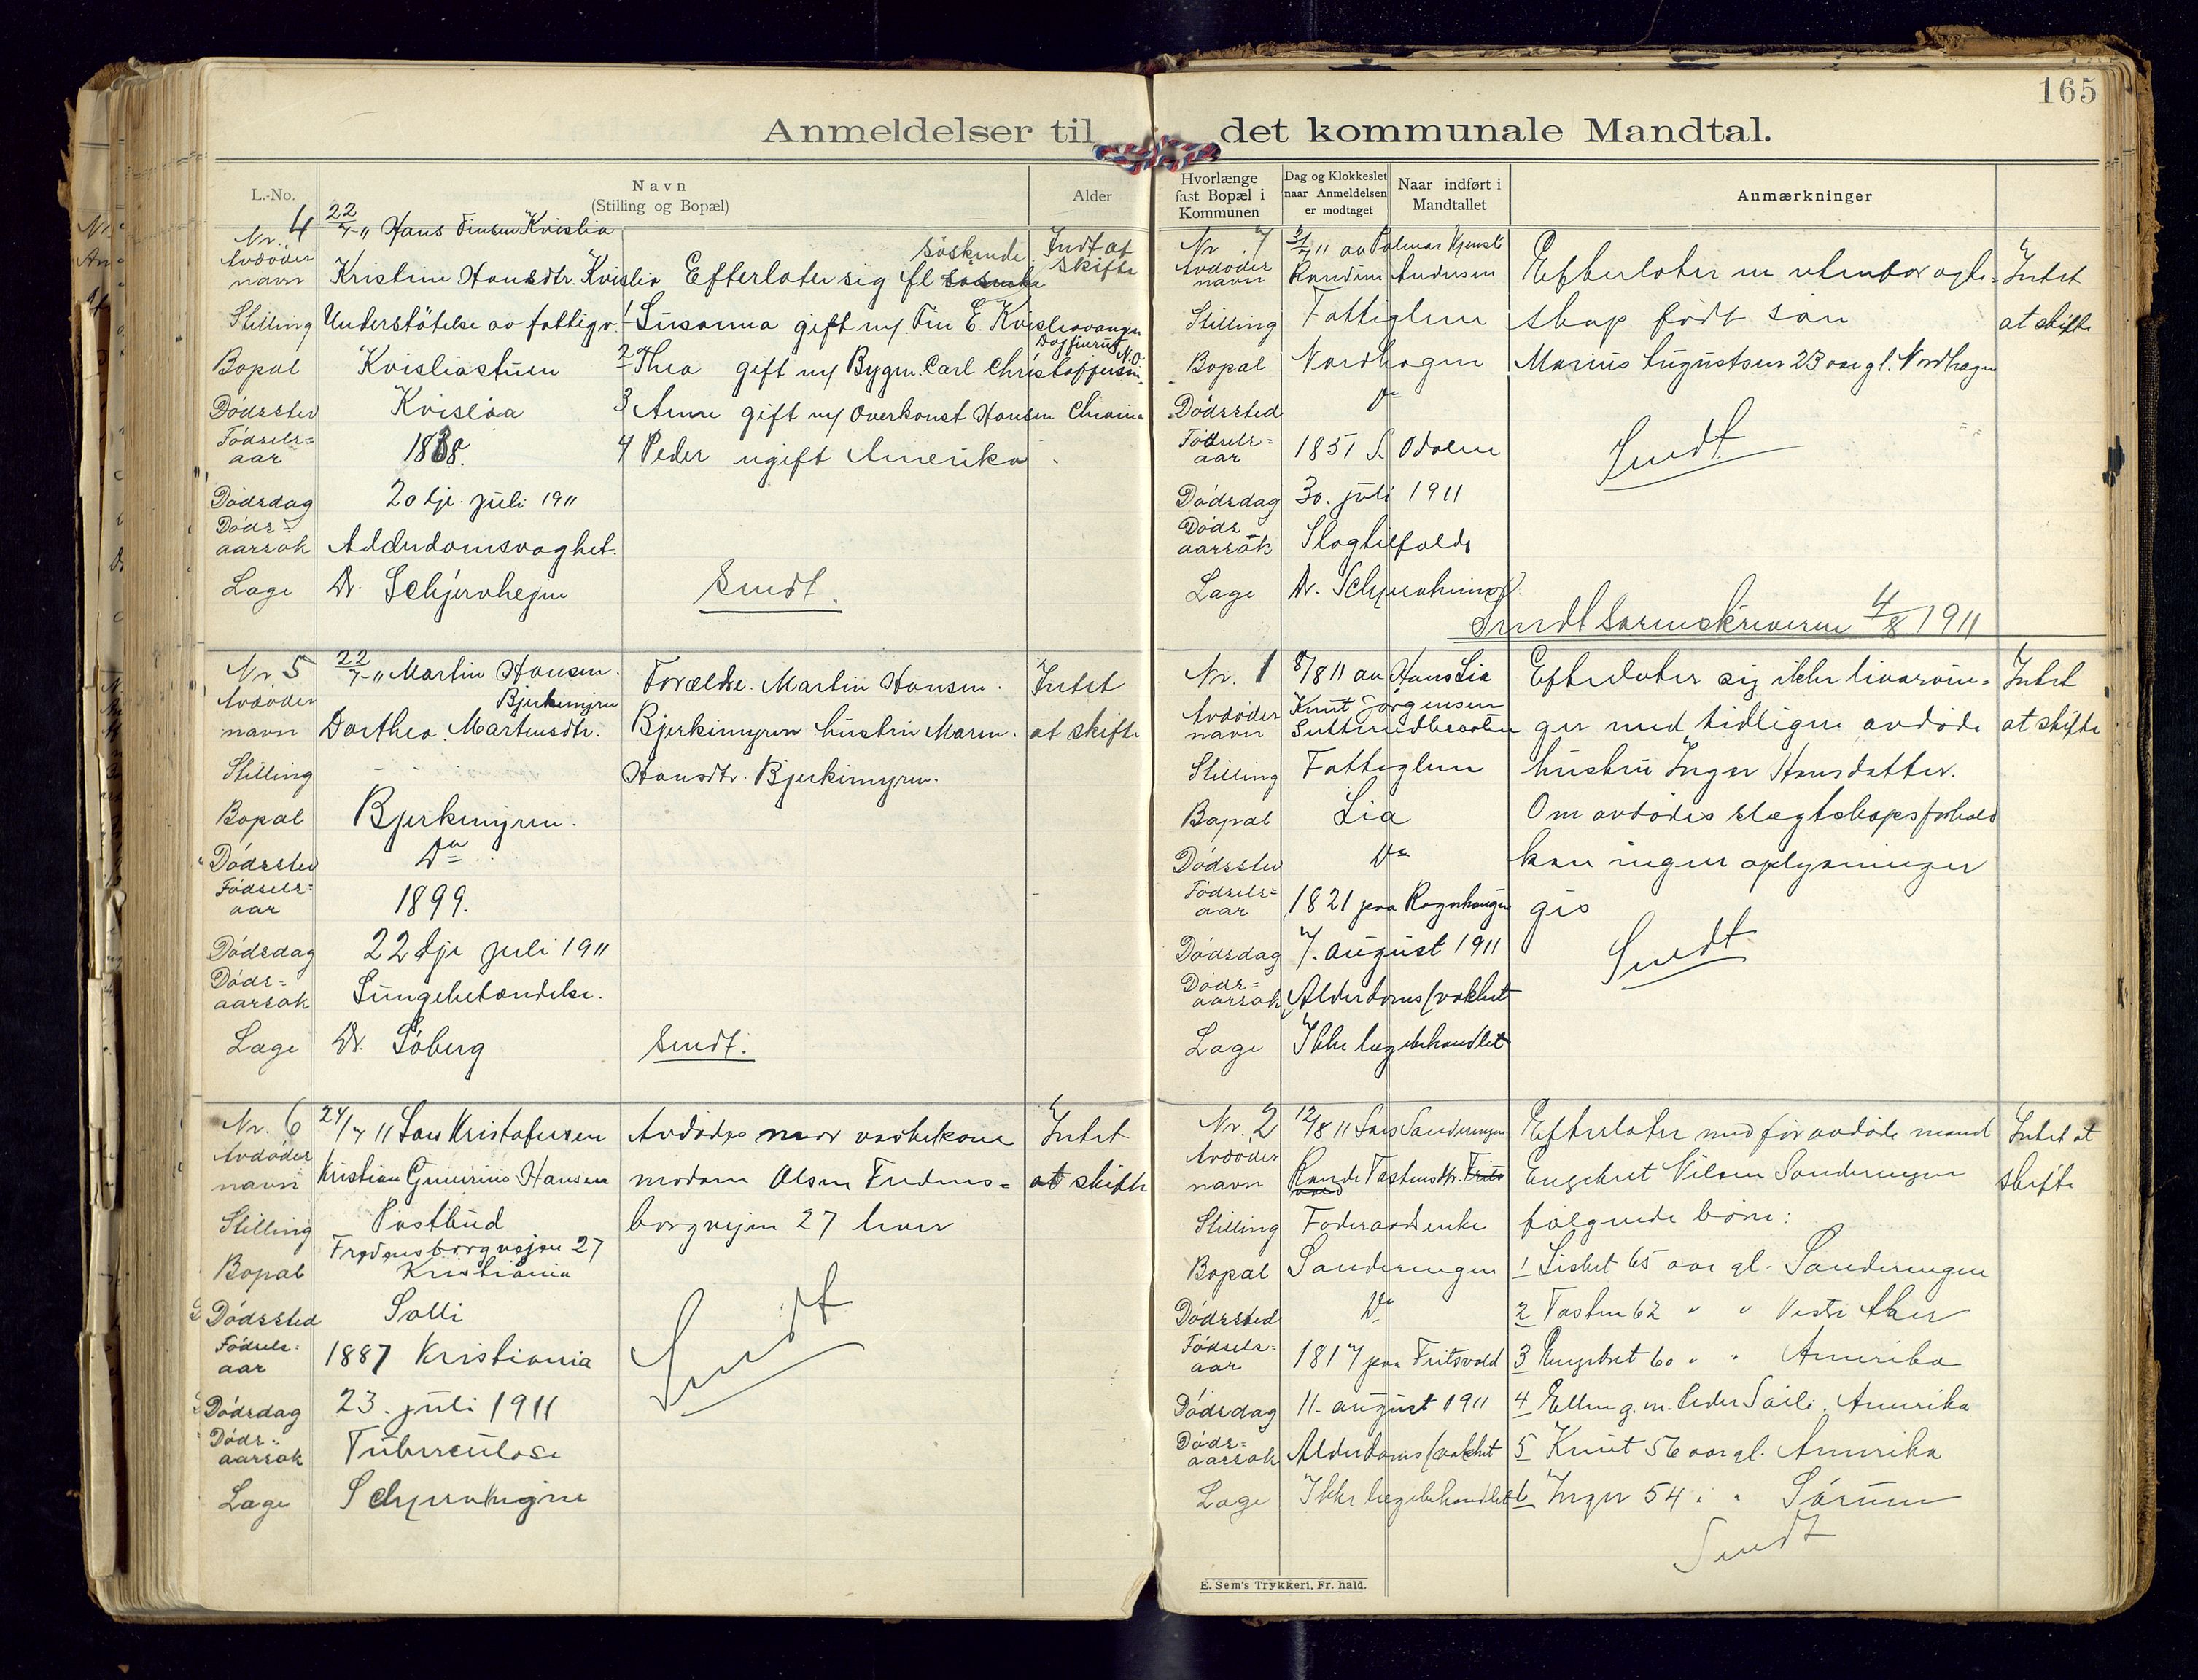 165
Anmeldelser til det kommunale Mandtal.
L.-No.
Navn
(Stilling og Bopæl)
Alder
Nr. 4 22/7-11 Hans Finsen Kvislia
Avdødes navn Kristine Hansdtr. Kvislia
Stilling Understøtelse av fattigv.
Bopæl Kvisliastuen
Dødssted Kvislia
Fødselsaar 1838.
Dødsdag 20 dje. juli 1911
Dødsaarsak Alderdomsvaghet.
Læge Dr. Schjervhejm
Efterlater sig fl søskende
1 Susanna gift m/ Fin E. Kvisliavangen
2 Thea gift m/ Bygm. Carl Christoffersen
3 Anne gift m/ Overkonst Hansen Chrania
4 Peder ugift Amerika
Sendt.
Intet at
skifte
Nr. 5 22/7-11 Martin Hansen
Bjerkimyren
Avdødes navn Dorthea Martinsdtr.
Stilling - -
Bopæl Bjerkimyren.
Dødssted Do
Fødselsaar 1899.
Dødsdag 22 dje juli 1911
Dødsaarsak Lungebetændelse.
Læge Dr. Søberg
Forældre. Martin Hansen.
Bjerkimyren hustru Maren
Hansdtr. Bjerkimyren.
Sendt.
Intet
at skifte
Nr. 6 24/7 11 Lars Kristofersen
Avdødes navn Kristian Gunerius Hansen
Stilling Postbud
Bopæl Fredensborgvejen 27
Kristiania
Dødssted Solli
Fødselsaar 1887 Kristiania
Dødsdag 23. juli 1911
Dødsaarsak Tuberculose
Læge Schjervheim
Avdødes mor vaskekone
madam Olsen Fredens=
borgvejen 27
Sendt
Intet
at skifte
Hvorlænge
fast Bopæl i
Kommunen
Dag og Klokkeslet
naar Anmeldelsen
er modtaget
Naar indført i
Mandtallet
Anmærkninger
Nr. 7 31/7 11 av Palmar
Avdødes navn Randine Andersen
Stilling Fattiglem
Bopæl Nordhagen
Dødssted Do
Fødselsaar 1851 S. Odalen
Dødsdag 30. juli 1911
Dødsaarsak Slagtilfælde
Læge Dr. Schjervheim
Efterlater en utenfor egte=
skap født søn
Marius Augustsen 23 aar gl. Nordhagen
Sendt
Intet
at skifte
Sendt Sorenskriveren 4/8 1911
Nr. 1 8/8 11 av Hans Lia
Avdødes navn Knut Jørgensen
Stilling Fattiglem
Bopæl Lia
Dødssted Do
Fødselsaar 1821 paa Rognhaugen
Dødsdag 7. august 1911
Dødsaarsak Alderdomssvakhet
Læge Ikke lægebehandlet
Efterlater sig ikke livsarvin=
ger med tidligere avdøde
hustru Inger Hansdatter.
Om avdødes slægtskapsforhold
kan ingen oplysninger
gis
Sendt
Intet
at skifte
Nr. 2 12/8 11 Lars Sanderengen
Avdødes navn Rande Tostensdtr.
Stilling Føderaadsenke
Bopæl Sanderengen
Dødssted Do
Fødselsaar 1817 paa Fritsvold
Dødsdag 11. august 1911
Dødsaarsak Alderdomssvakhet
Læge Ikke lægebehandlet
Efterlater med før avdøde mand
Engebret Nilsen Sanderengen
følgende børn:
1 Lisbet 65 aar gl. Sanderengen
2 Tosten 62 " " Vestre Aker
3 Engebret 60 " " Amerika
4 Ellen g.m. Peder Amerika
5 Knut 56 aar gl. Amerika
6 Inger 54 " " Sørum
Sendt
Intet at
skifte
E. Sem's Trykkeri, Fr. hald.